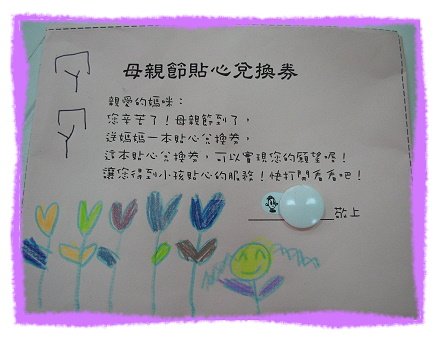 母親節貼心兌換券
親愛的媽咪：
您辛苦了！母親節到了，
送媽媽一本貼心兌換券，
這本貼心兌換券，可以實現您的願望喔！
讓您得到小孩貼心的服務！快打開看看吧！
敬上